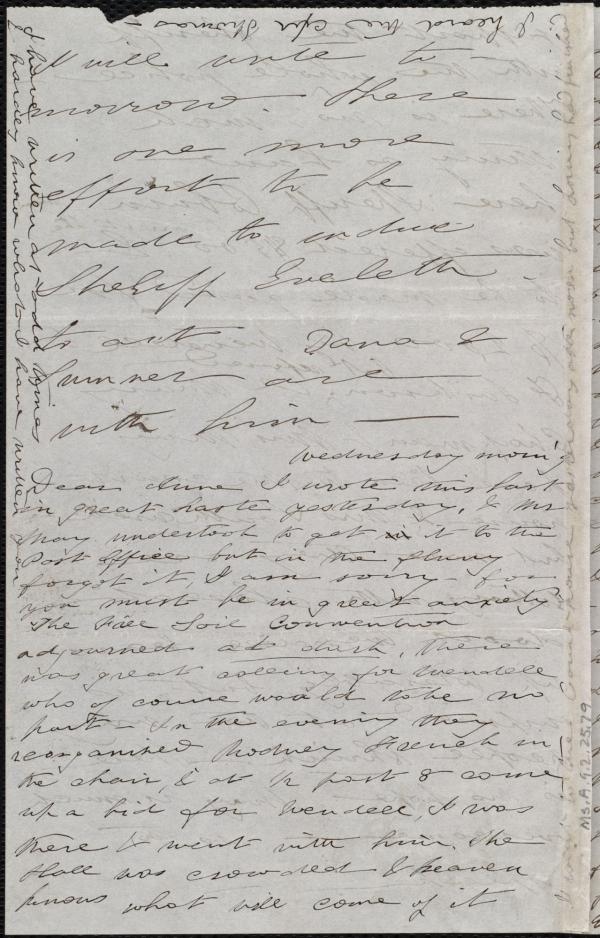 I heard the after Thomas -
I will write to
morrow. There
is one more
effort to be
made to induce
Sheriff Eveleth
to act Dana &
Sumner are
with him —
Wednesday morn'g
Dear Anne I wrote this last
in great haste yesterday, & Mr
May undertook to get it to the
Post Office but in the flurry
forgot it, I am sorry for
you must be in great anxiety
The Free Soil Convention
adjourned at dusk, there
was great calling for Wendell
who of course would to be no
part - In the evening they
reorganised Rodney French in
the chair, & at ½ past 8 come
up a bid for Wendell, I was
there & went with him. The
Hall was crowded & heaven
knows what will come of it
I have written at odd times
I hardly know what I have written
MS.A.9.2.25.79